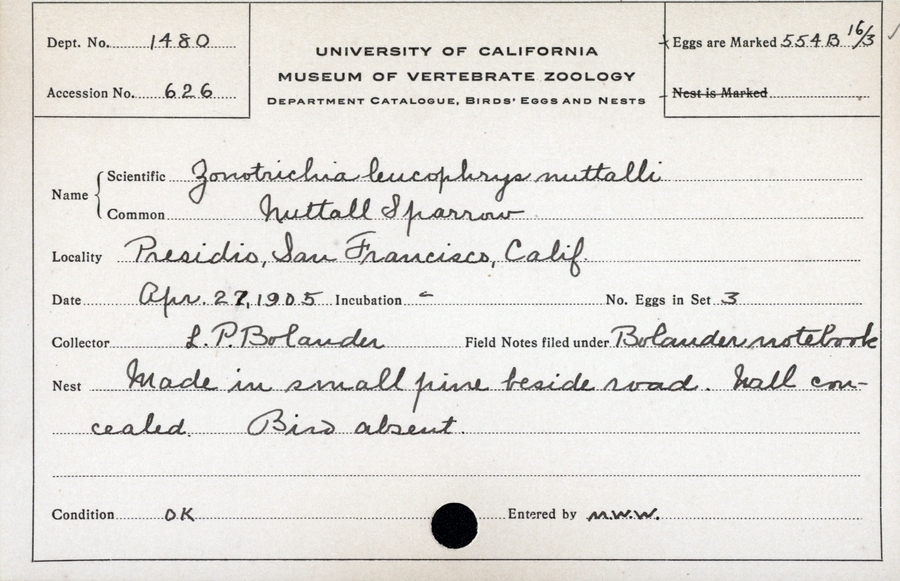 Dept. No. 1480
Accession No. 626
UNIVERSITY OF CALIFORNIA
MUSEUM OF VERTEBRATE ZOOLOGY
DEPARTMENT CATALOGUE, BIRDS' EGGS AND NESTS
Eggs are Marked 554B 16/3
Nest is Marked
Name Scientific Zonotrichia leucophrys nuttalli
Common Nuttall Sparrow
Locality Presidio, San Francisco, Calif.
Date Apr. 27, 1905 Incubation - No. Eggs in Set 3
Collector L. P. Bolander Field Notes filed under Bolander, notebook
Nest Made in small pine beside road. Well con-
cealed. Bird absent.
Condition OK Entered by M.W.W.